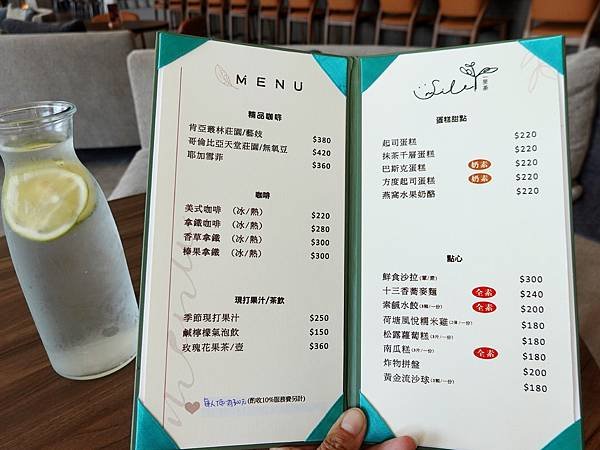 MENU
精品咖啡
肯亞叢林莊園/藝妓 $380
哥倫比亞天堂莊園/無氧豆 $420
耶加雪菲 $360
咖啡
美式咖啡 （冰/熱） $220
拿鐵咖啡 （冰/熱） $280
香草拿鐵 （冰/熱） $300
榛果拿鐵 （冰/熱） $300
現打果汁/茶飲
季節現打果汁 $250
鹹檸檬氣泡飲 $150
玫瑰花果茶/壺 $360
(酌收10%服務費另計)
蛋糕甜點
起司蛋糕 $220
抹茶千層蛋糕 $220
巴斯克蛋糕 奶素 $220
方度起司蛋糕 奶素 $220
燕窩水果奶酪 $220
點心
鮮食沙拉(葷/素) $300
十三香蕎麥麵 全素 $240
素餛水餃 全素 $200
荷塘風悅糯米雞 $180
松露蘿蔔糕 $180
南瓜糕 全素 $180
炸物拼盤 $200
黃金流沙球 $180